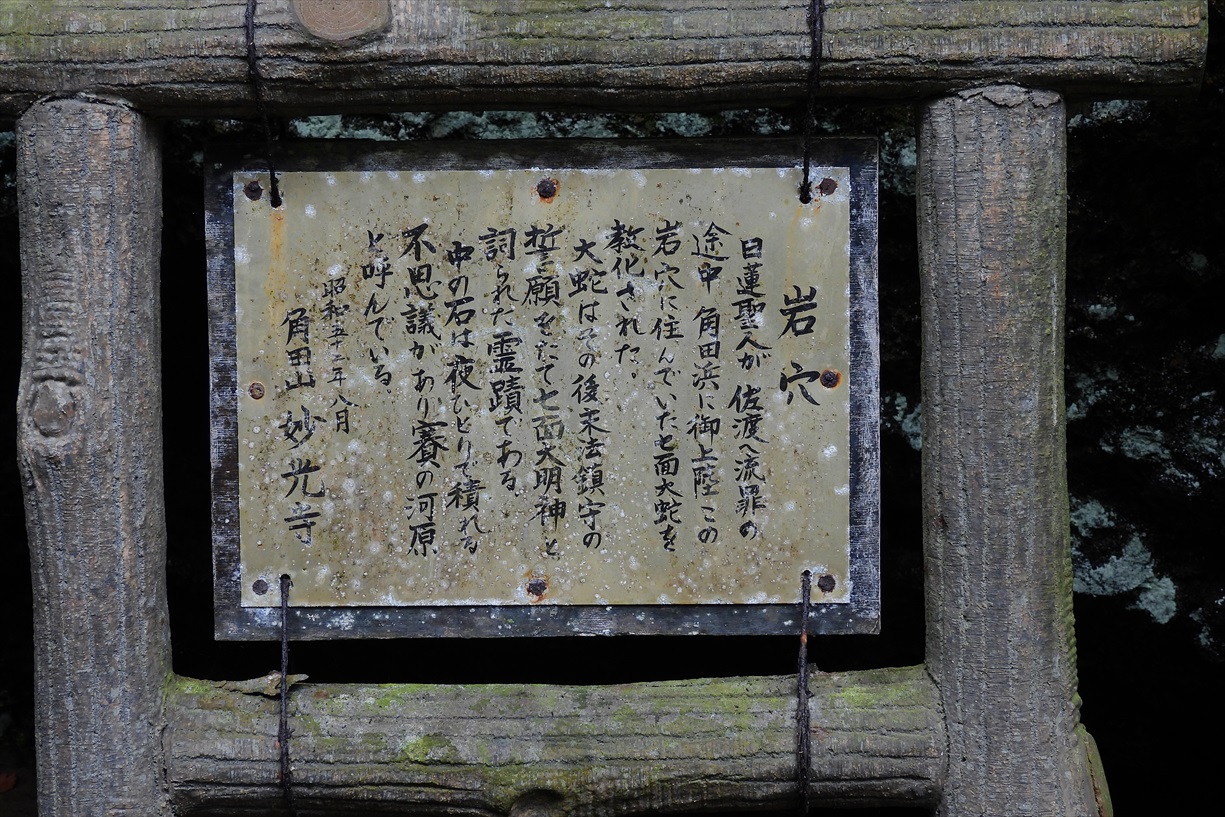 岩穴
日蓮聖人が佐渡へ流罪の
途中 角田浜に御上陸 この
岩穴に住んでいた七面大蛇を
教化された。
大蛇はその後末法鎮守の
誓願をたて七面大明神と
詞られた霊蹟である。
中の石は夜ひとりで積れる
不思議があり賽の河原
と呼んでいる。
昭和五十二年八月
角田山 妙光寺